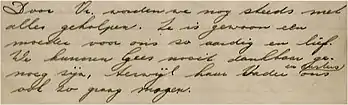 Door Uw. worden we nog steeds met
alles geholpen. Ze is gewoon een
moeder voor ons zo aardig en lief.
We kunnen Cees nooit dankbaar ge-
noeg zijn, terwijl haar Vader en ons
ook zo graag mogen.